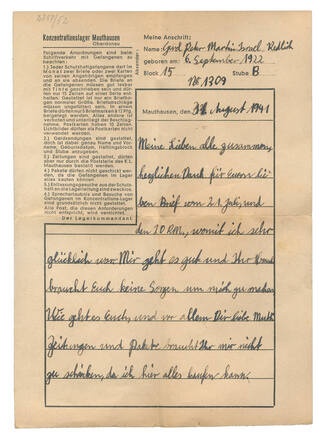 2257/52
Konzentrationslager Mauthausen
Oberdonau
Folgende Anordnungen sind beim
Schriftverkehr mit Gefangenen zu
beachten:
1.) Jeder Schutzhaftgefangene darf im
Monat zwei Briefe oder zwei Karten
von seinen Angehörigen empfangen
und an sie absenden. Die Briefe an
die Gefangenen müssen gut lesbar
mit Tinte geschrieben sein und dür-
fen nur 15 Zeilen auf einer Seite ent-
halten. Gestattet ist nur ein Briefbo-
gen normaler Größe. Briefumschläge
müssen ungefüttert sein. In einem
Briefe dürfen nur 5 Briefmarken à 12 Pfg.
beigelegt werden. Alles andere ist
verboten und unterliegt der Beschlag-
nahme. Postkarten haben 10 Zeilen.
Lichtbilder dürfen als Postkarten nicht
verwendet werden.
2.) Geldsendungen sind gestattet,
doch ist dabei genau Name und Vor-
name, Geburtsdatum, Häftlingsblock
und Stube anzugeben.
3.) Zeitungen sind gestattet, dürfen
aber nur durch die Poststelle des K.L.
Mauthausen bestellt werden.
4.) Pakete dürfen nicht geschickt wer-
den, da die Gefangenen im Lager
alles kaufen können.
5.) Entlassungsgesuche aus der Schutz-
haft an die Lagerleitung sind zwecklos.
6.) Sprecherlaubnis und Besuche von
Gefangenen im Konzentrationslager
sind grundsätzlich nicht gestattet.
Alle Post, die diesen Anforderungen
nicht entspricht, wird vernichtet.
Der Lagerkommandant
Meine Anschrift:
Name: Gerd Peter Martin Israel
geboren am: 6. September 1922
Block 15 Stube B
Nr. 1309
Mauthausen, den 31. August 1941
Meine Lieben alle zusammen,
herzlichen Dank für Euern lie-
ben Brief vom 21. Juli, und
den 20 RM, womit ich sehr
glücklich war. Mir geht es gut und Ihr
braucht Euch keine Sorgen um mich zu machen.
Wie geht es Euch, und vor allem Dir liebe Mutti
Zeitungen und Pakete braucht Ihr mir nicht
zu schicken, da ich hier alles kaufen kann.